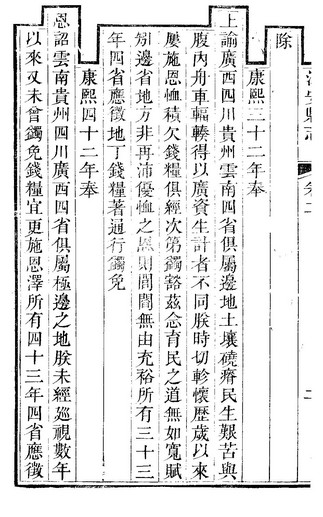 除
康熙三十二年奉
上諭廣西四川貴州雲南四省俱屬邊地土壤磽瘠民生艱苦與
腹內舟車輻輳得以廣資生計者不同朕時切軫懷歷歲以來
屢施恩恤積欠錢糧俱經次第蠲豁茲念育民之道無如寬賦
矧邊省地方非再沛優恤之恩則閭閻無由充裕所有三十三
年四省應徵地丁錢糧著通行蠲免
康熙四十二年奉
恩詔雲南貴州四川廣西四省俱屬極邊之地朕未經廵視數年
以來又未曾蠲免錢糧宜更施恩澤所有四十三年四省應徵